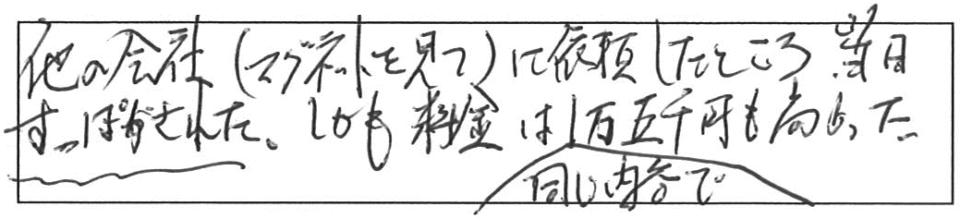 他の会社(マグネットを見て)に依頼したところ当日
すっぽかされた。しかも料金は1万五千円も高かった
同じ内容で